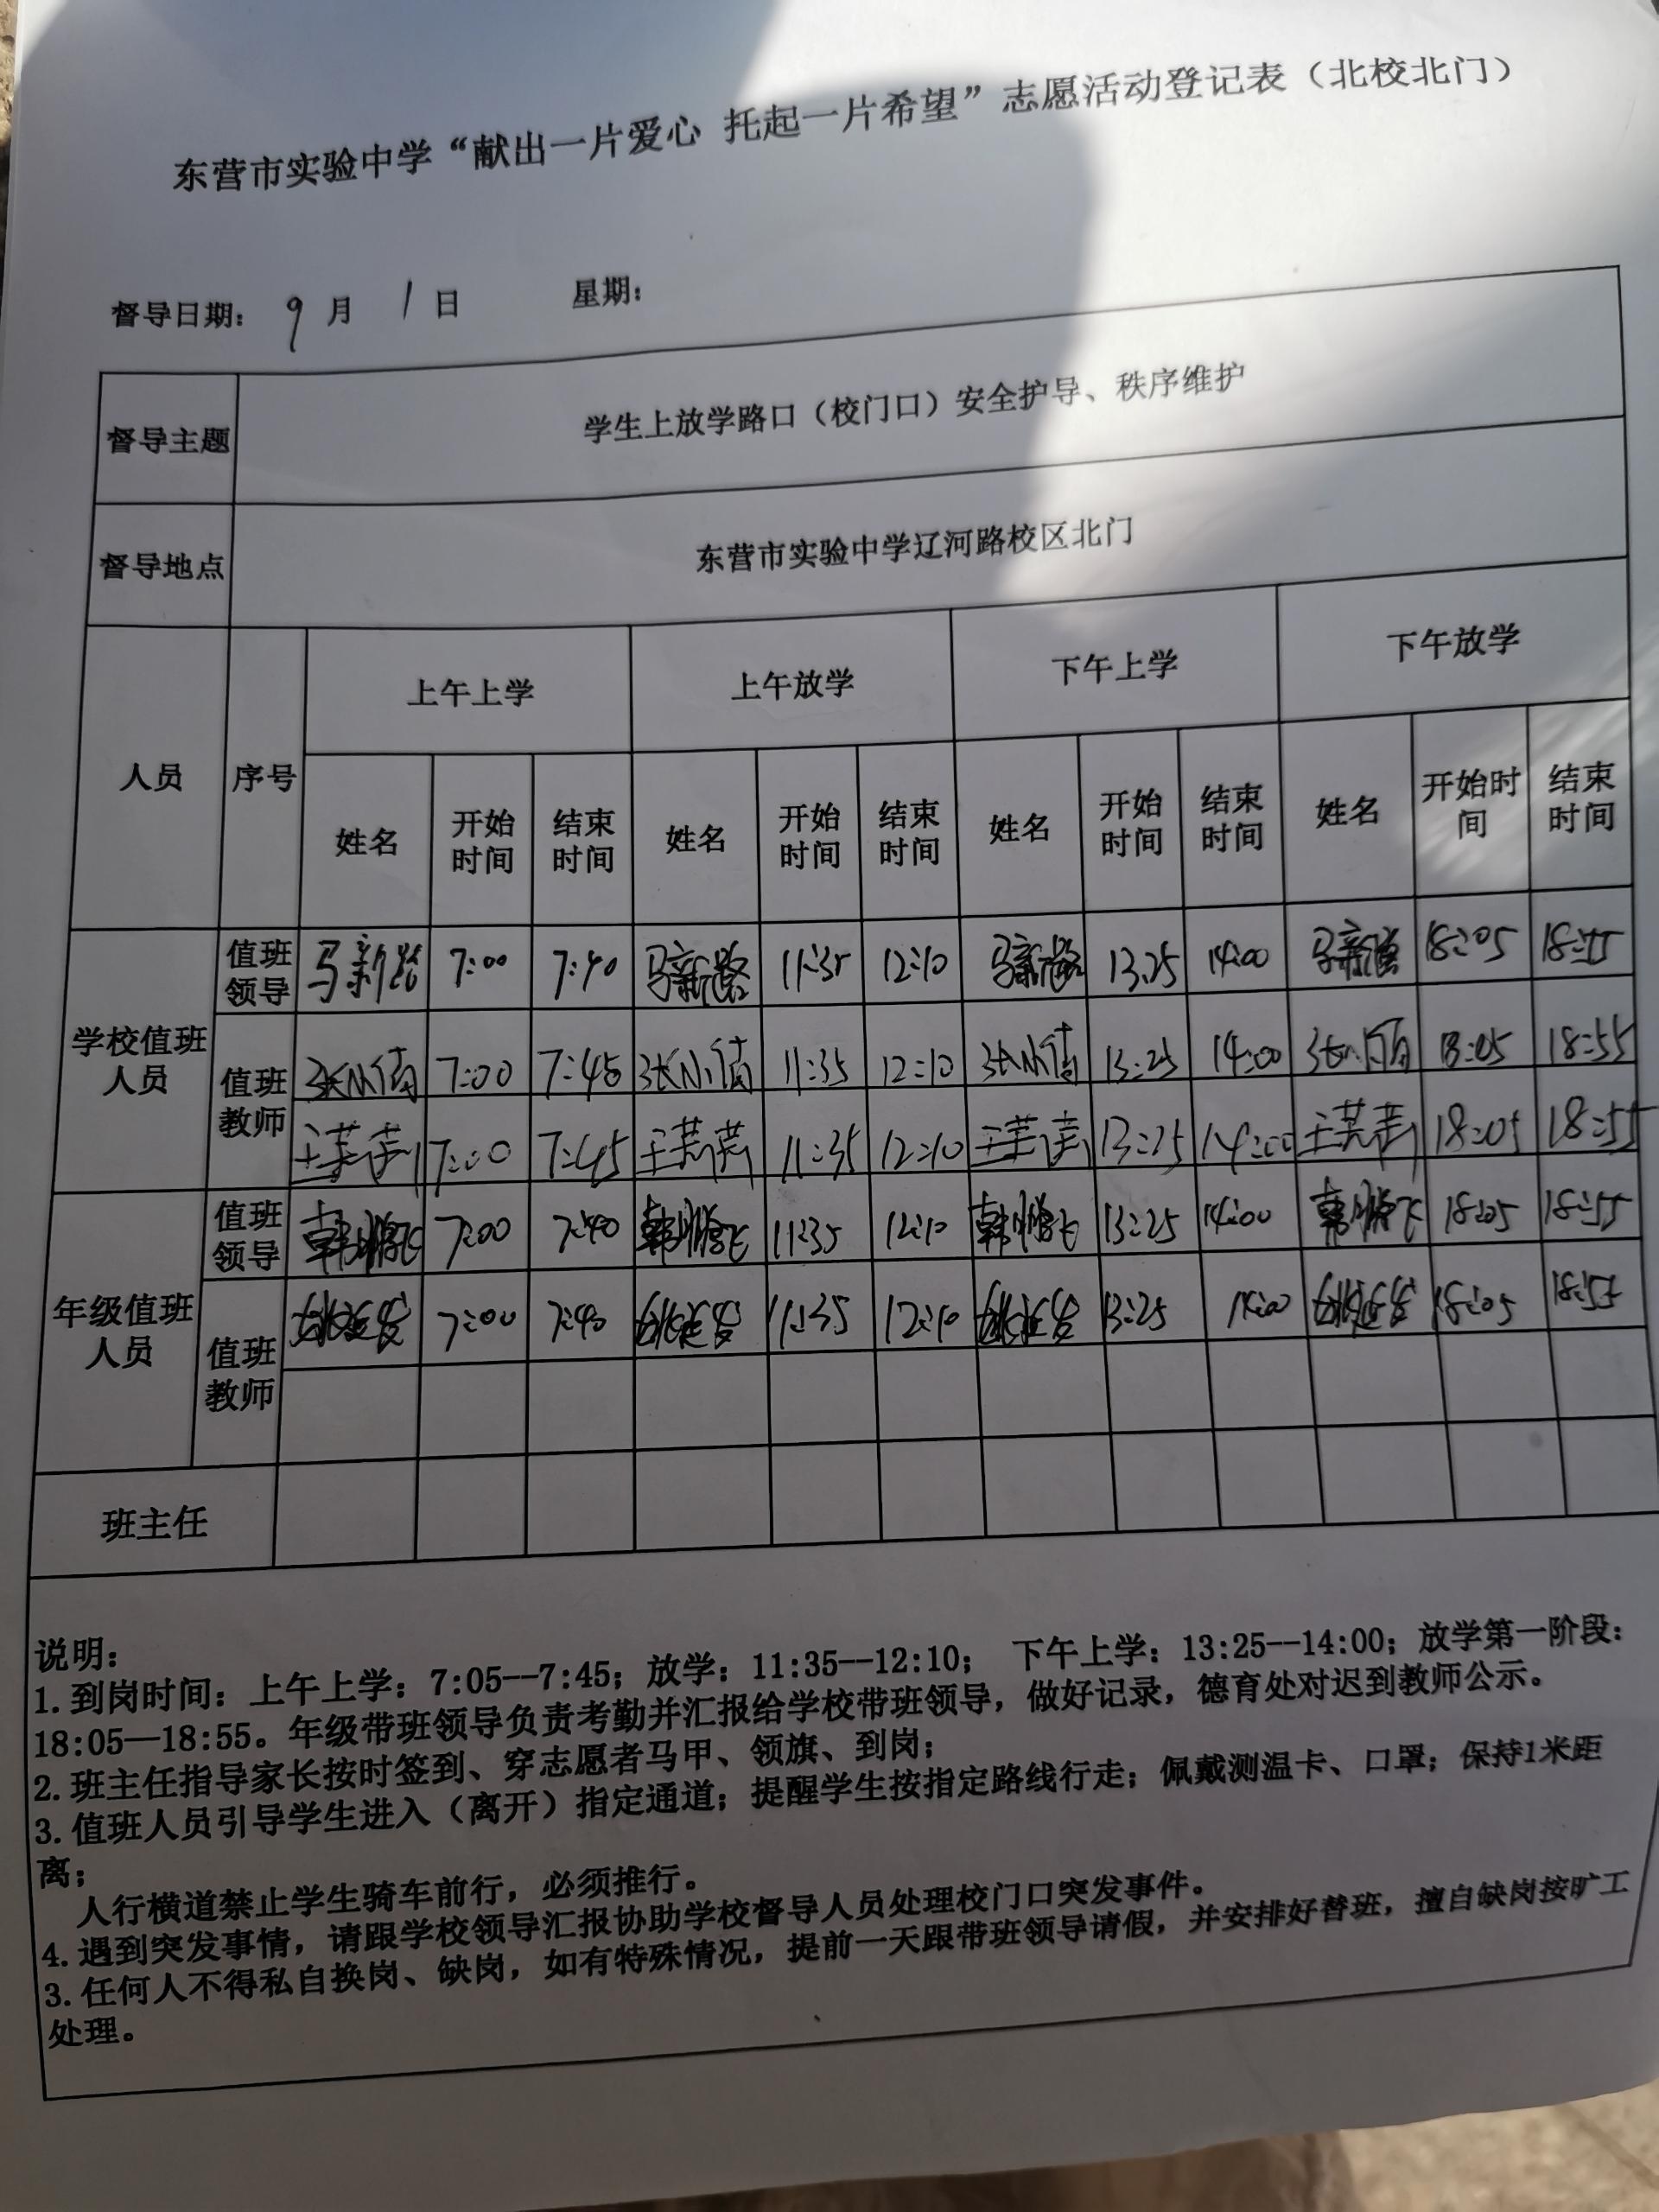 东营市实验中学“献出一片爱心 托起一片希望”志愿活动登记表（北校北门）
督导日期： 9 月 1 日 星期：
督导主题 学生上放学路口（校门口）安全护导、秩序维护
督导地点 东营市实验中学辽河路校区北门
人员 序号 上午上学 上午放学 下午上学 下午放学
姓名 开始时间 结束时间 姓名 开始时间 结束时间 姓名 开始时间 结束时间 姓名 开始时间 结束时间
学校值班人员 值班领导 马新路 7:00 7:40 马新路 11:35 12:10 马新路 13:25 14:00 马新路 18:05 18:55
值班教师 7:00 7:45 11:35 12:10 13:25 14:00 18:55
7:00 7:45 11:35 12:10 13:25 14:00 18:05 18:55
年级值班人员 值班领导 韩鹏飞 7:00 7:40 韩鹏飞 11:35 12:10 韩鹏飞 13:25 14:00 韩鹏飞 18:05 18:55
值班教师 7:00 7:40 11:35 12:10 13:25 14:00 18:05 18:55
班主任
说明：
1.到岗时间：上午上学：7:05--7:45；放学：11:35--12:10； 下午上学：13:25--14:00；放学第一阶段：
18:05—18:55。年级带班领导负责考勤并汇报给学校带班领导，做好记录，德育处对迟到教师公示。
2.班主任指导家长按时签到、穿志愿者马甲、领旗、到岗；
3.值班人员引导学生进入（离开）指定通道；提醒学生按指定路线行走；佩戴测温卡、口罩；保持1米距
离；
人行横道禁止学生骑车前行，必须推行。
4.遇到突发事情，请跟学校领导汇报协助学校督导人员处理校门口突发事件。
3.任何人不得私自换岗、缺岗，如有特殊情况，提前一天跟带班领导请假，并安排好替班，擅自缺岗按旷工
处理。